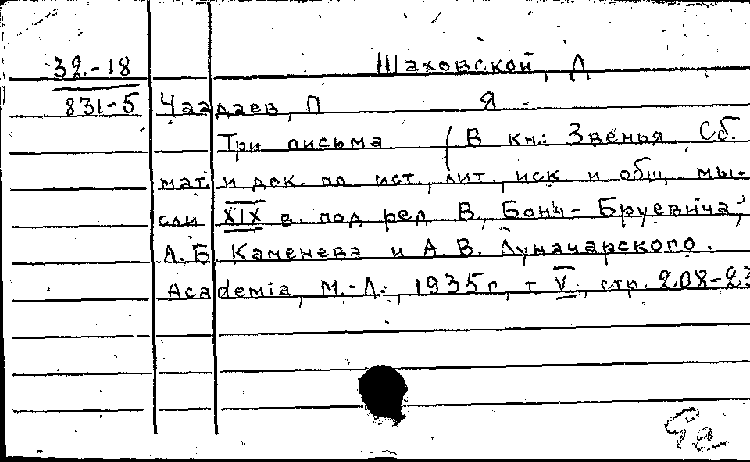 32.-18 Шаховской, Д
831-5 Чаадаев, П Я.
Три письма (В кн: Звенья Сб.
мат. и док. по ист., лит., иск и общ. мы-
сли XIX в. под ред В. Бонч-Бруевича,
Л. Б. Каменева и А. В. Луначарского.
Academia, М.-Л., 1935г, т V, стр. 208-23